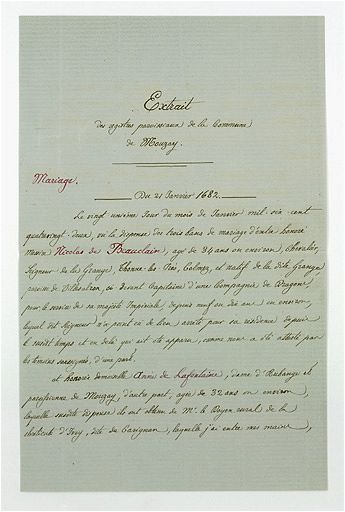 Extrait
des registres paroissiaux de la Commune
de Mouzay.
Mariage.
Du 21 Janvier 1682.
Le vingt unième Jour du mois de Janvier mil-six-cent
quatrevingt-deux, vu la dispense des trois bans de mariage d'entre honoré
Messire Nicolas de Beauclair, agé de 34 ans ou environ, Chevalier,
Seigneur de la Grange, les Prés, Colmez, et natif de la dite Grange
paroisse de , ci-devant Capitaine d'une Compagnie de Dragons,
pour le service de sa majesté Impériale, depuis neuf ou dix ans ou environ,
lequel dit Seigneur n'a point eu de lieu arrêté pour sa résidence depuis
le susdit temps et en delà qui ait été apparu, comme nous a été attesté par
les témoins soussignés, d'une part,
et honorée demoiselle Anne de Lafontaine, dame d'Aubange et
paroissienne de Mouzay, d'autre part, agée de 32 ans ou environ,
laquelle susdite dispense ils ont obtenu de Mr. le Doyen rural de la
chrétienté d'Ivoy, dite de Carignan, laquelle j'ai entre mes mains,